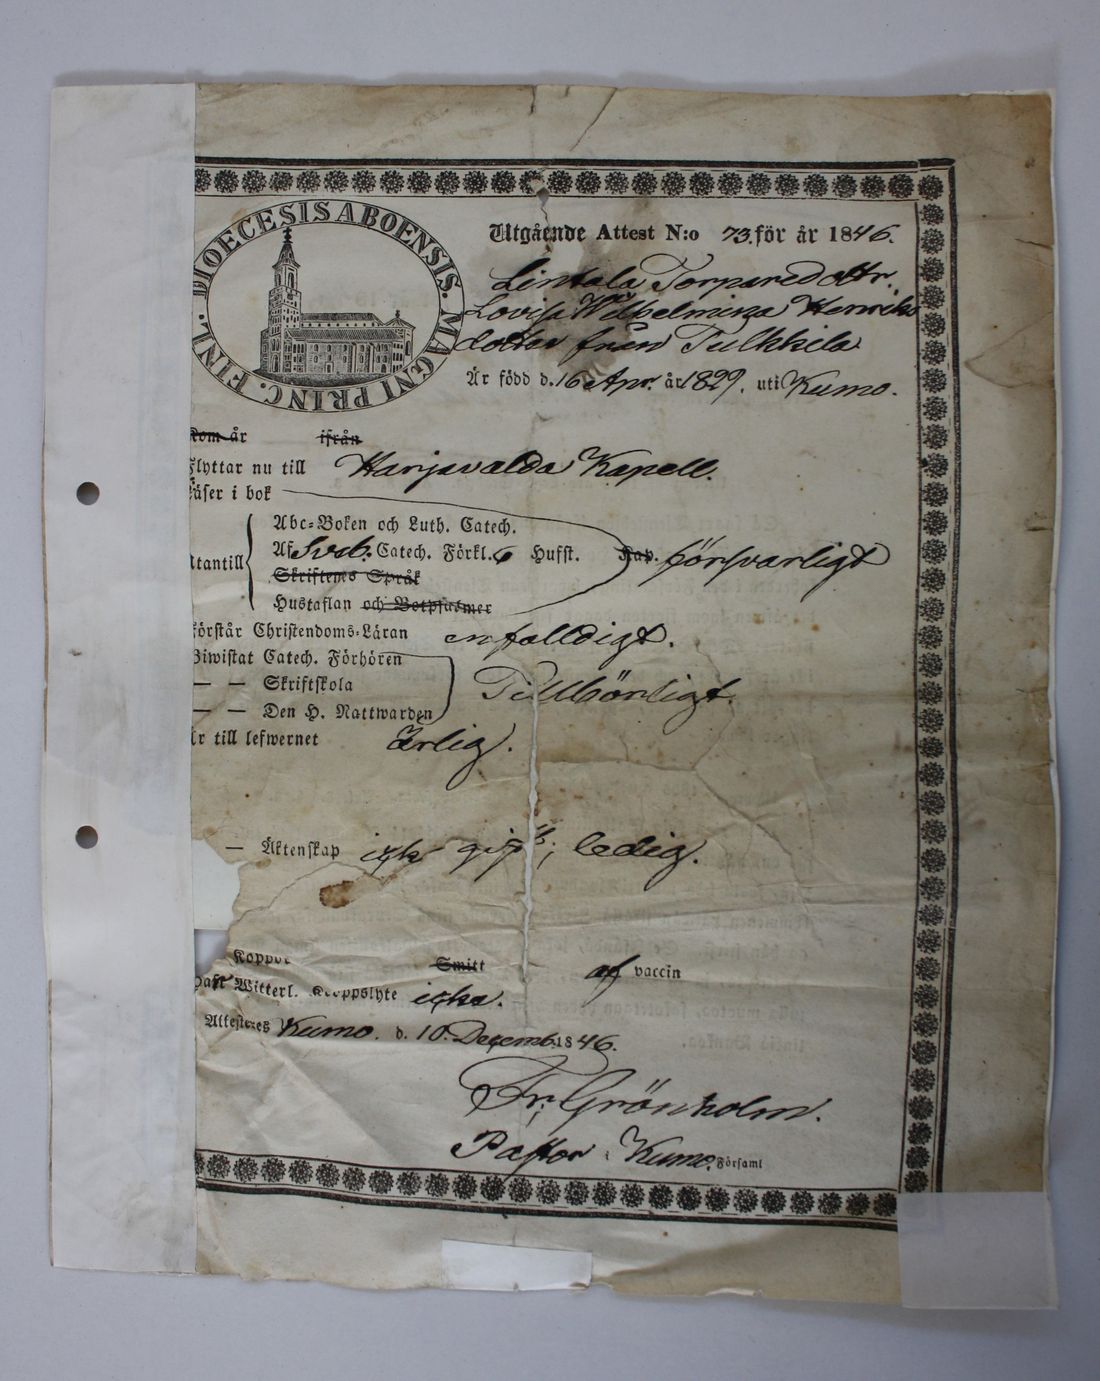 DIOECESIS ABOENSIS. MAGNI PRINC. FINL.
Utgående Attest N:o 73. för år 1846.
Lintala Torparedottr.
Lovisa Wilhelmina Henriks
dotter från Tulkkila
Är född d. 16 Apr. år 1829. uti Kumo.
Kom år ifrån
Flyttar nu till Harjavalda Kapell.
Läser i bok
Abc-Boken och Luth. Catech.
Utantill Af Sveb. Catech. Förkl. Hufst. Kap. försvarligt
Skriftenes Språk
Hustaflan och Botpsalmer
Förstår Christendoms-Läran enfalldigt.
Biwistat Catech. Förhören
— — Skriftskola Tillbörligt.
— — Den H. Nattwarden
Är till lefwernet Ärlig.
— Äktenskap icke gift, ledig.
Koppor Smitt af vaccin
Haft Witterl. Kroppslyte icke.
Attesteres Kumo. d. 10. Decemb. 1846.
Fr: Grönholm.
Pastor i Kumo. Församl